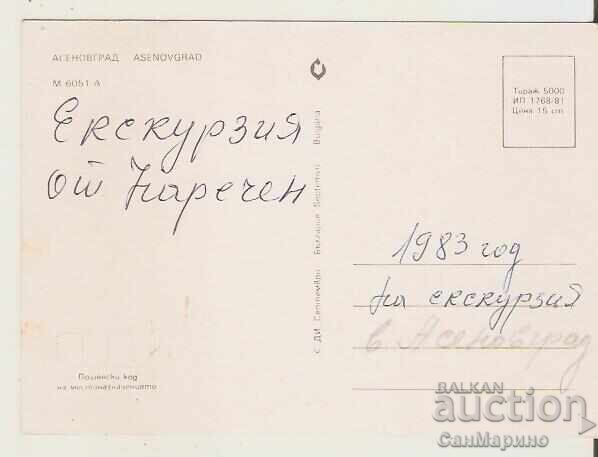 АСЕНОВГРАД ASENOVGRAD
М 6051 А
Екскурзия
от Наречен
Тираж 5000
ИП 1768/81
Цена 15 ст.
С ДИ „Септември" България Septemvri Bulgaria
1983 год
на екскурзия
в Асеновград
Пощенски код
на местоназначението
BALKAN
auction
СанМарино